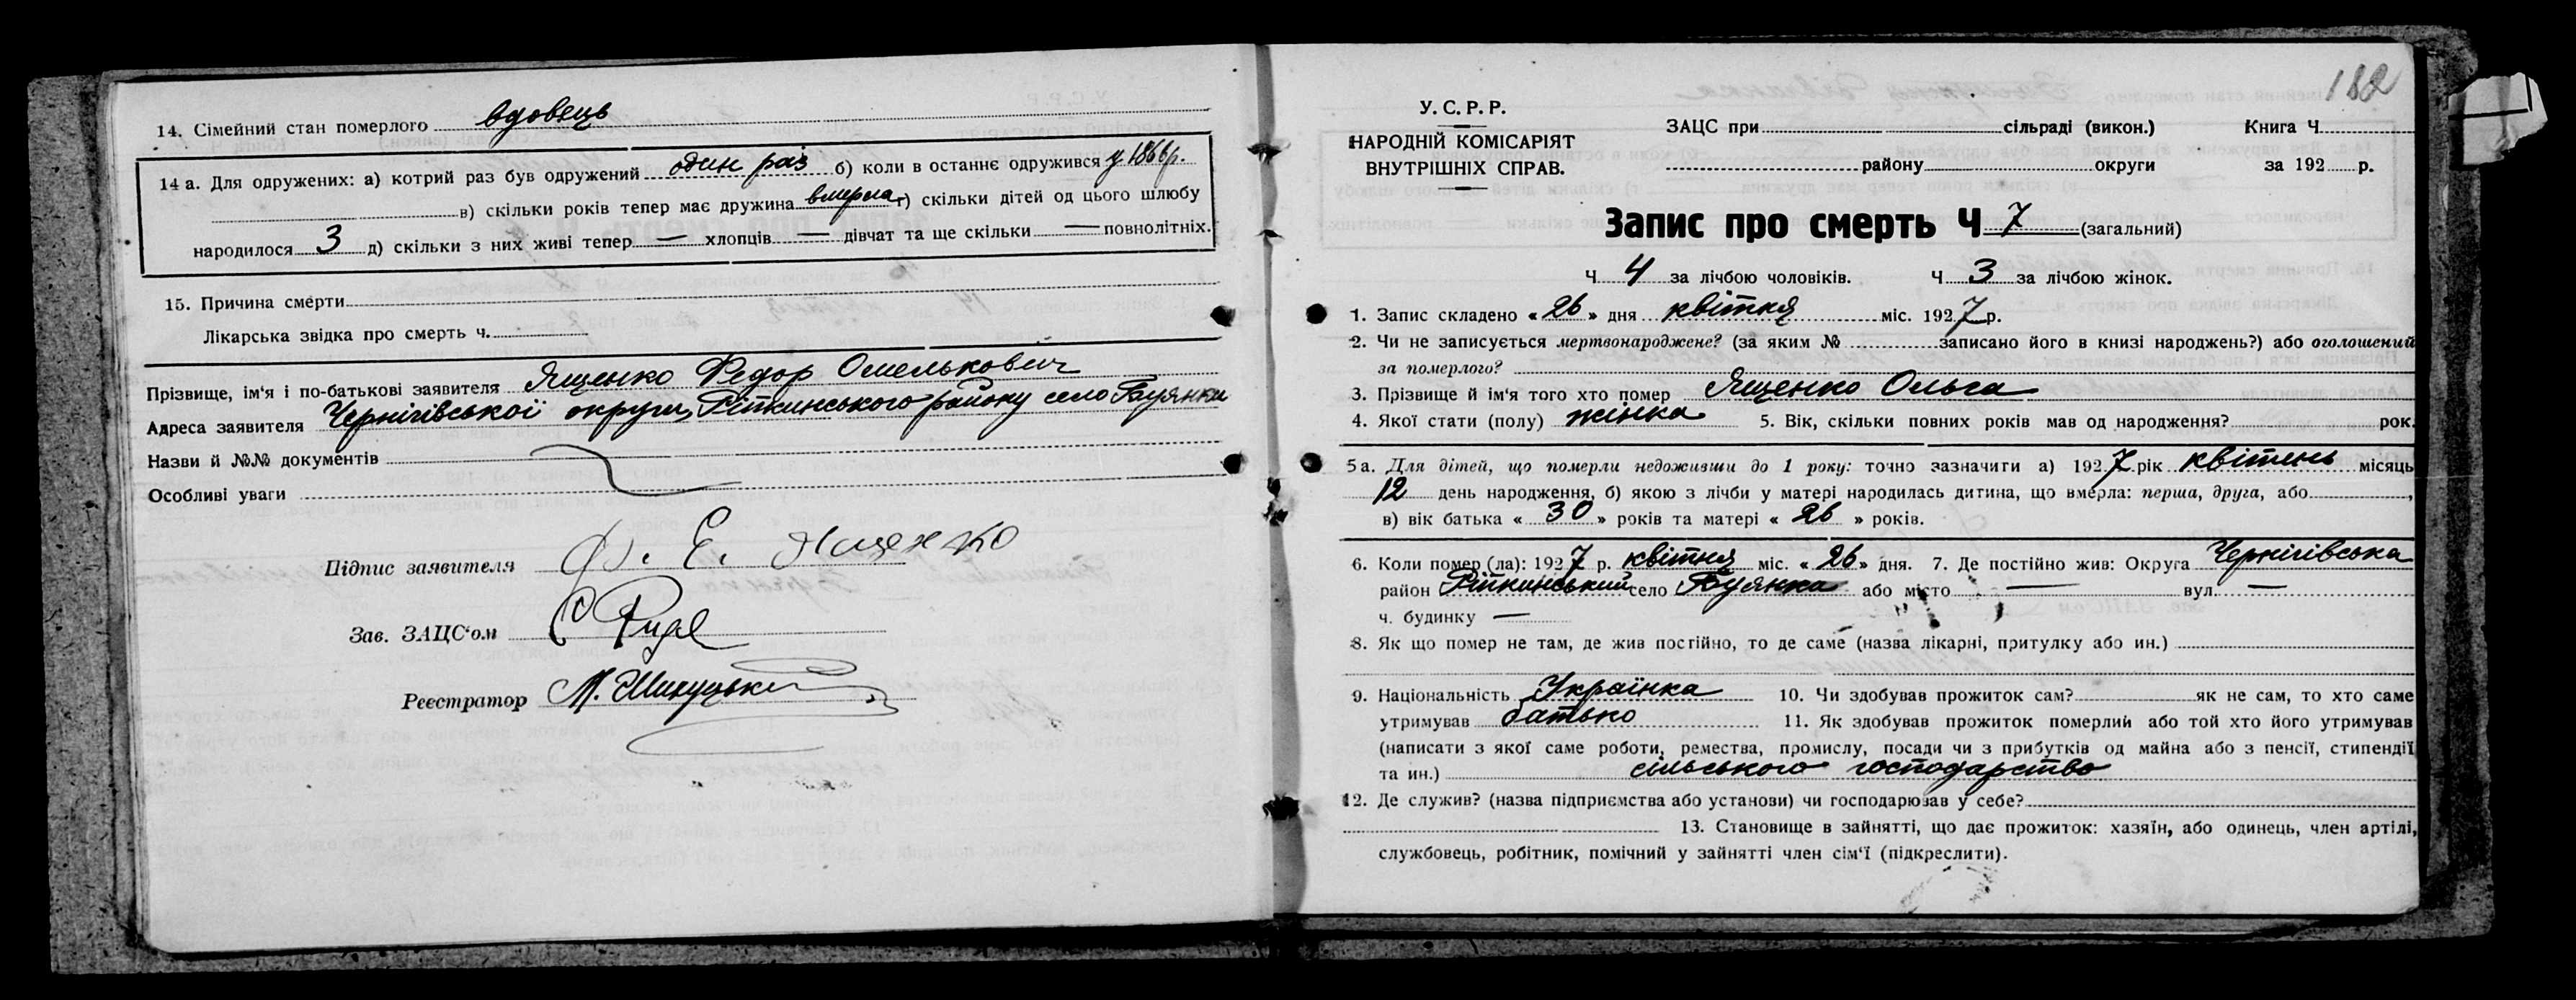 14. Сімейний стан померлого вдовець
14 а. Для одружених: а) котрий раз був одружений один раз б) коли в останнє одружився у 1866 р.
в) скільки років тепер має дружина вмерла г) скільки дітей од цього шлюбу
народилося 3 д) скільки з них живі тепер — хлопців — дівчат та ще скільки — повнолітніх.
15. Причина смерти
Лікарська звідка про смерть ч.
Прізвище, ім'я і по-батькові заявителя Ященко Федор Омелькович
Адреса заявителя Чернігівської округи, Ріпкинського району село Буянки
Назви й №№ документів
Особливі уваги
Підпис заявителя Ф. Е. Ященко
Зав. ЗАЦС'ом
Реєстратор М.
182
У. С. Р. Р.
НАРОДНІЙ КОМІСАРІЯТ
ВНУТРІШНІХ СПРАВ.
ЗАЦС при сільраді (викон.)
району округи
Книга Ч
за 192 р.
Запис про смерть Ч 7 (загальний)
Ч 4 за лічбою чоловіків. Ч 3 за лічбою жінок.
1. Запис складено « 26 » дня квітня міс. 1927 р.
2. Чи не записується мертвонароджене? (за яким № записано його в книзі народжень?) або оголошений
за померлого?
3. Прізвище й ім'я того хто помер Ященко Ольга
4. Якої стати (полу) жінка 5. Вік, скільки повних років мав од народження? рок.
5 а. Для дітей, що померли недоживши до 1 року: точно зазначити а) 1927 рік квітень місяць
12 день народження, б) якою з лічби у матері народилась дитина, що вмерла: перша, друга, або ,
в) вік батька « 30 » років та матері « 26 » років.
6. Коли помер (ла): 1927 р. квітня міс. « 26 » дня. 7. Де постійно жив: Округа Чернігівська
район Ріпкинський село Буянка або місто — вул. —
ч. будинку —
8. Як що помер не там, де жив постійно, то де саме (назва лікарні, притулку або ин.)
9. Національність Українка 10. Чи здобував прожиток сам? як не сам, то хто саме
утримував батько 11. Як здобував прожиток померлий або той хто його утримував
(написати з якої саме роботи, ремества, промислу, посади чи з прибутків од майна або з пенсії, стипендії
та ин.) сільського господарство
12. Де служив? (назва підприємства або установи) чи господарював у себе?
13. Становище в зайнятті, що дає прожиток: хазяїн, або одинець, член артілі,
службовець, робітник, помічний у зайнятті член сім'ї (підкреслити).